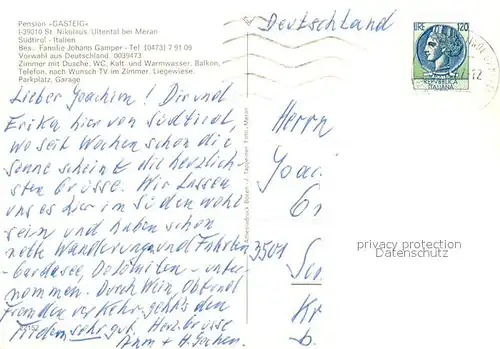 Pension »GASTEIG«
I-39010 St. Nikolaus, Ultental bei Meran
Südtirol - Italien
Bes.: Familie Johann Gamper - Tel. (0473) 7 91 09
Vorwahl aus Deutschland: 0039473
Zimmer mit Dusche, WC, Kalt- und Warmwasser, Balkon,
Telefon, nach Wunsch TV im Zimmer. Liegewiese.
Parkplatz, Garage
Deutschland
LIRE 120
REPUBBLICA
ITALIANA
Lieber Joachim! Dir und
Erika hier von Südtirol,
wo seit Wochen schon die
Sonne scheint die herzlich-
sten Grüsse. Wir lassen
uns es hier im Süden wohl
sein und haben schon
nette Wanderungen und Fahrten
- Gardasee, Dolomiten - unter-
nommen. Durch Wein, Obst und
Fremdenverkehr geht's den
sehr gut. Herz. Grüsse
Ann + H.
Herrn
Joac
Gr
3501
Kr
b.
privacy protection